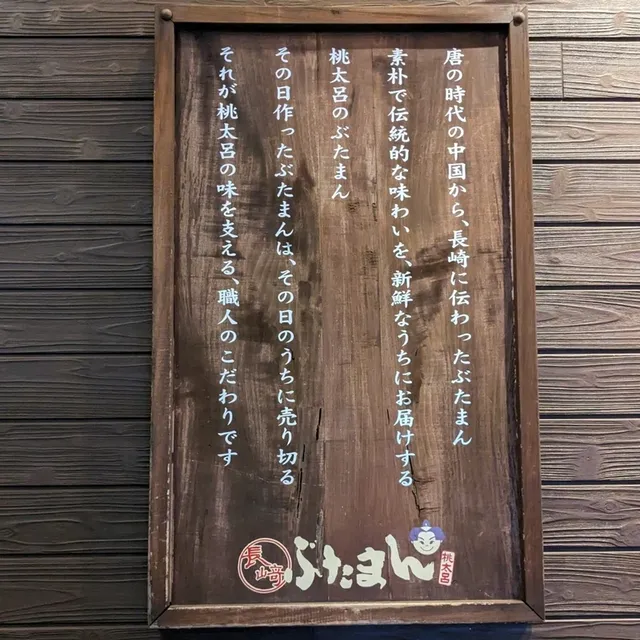 唐の時代の中国から、長崎に伝わったぶたまん
素朴で伝統的な味わいを、新鮮なうちにお届けする
桃太呂のぶたまん
その日作ったぶたまんは、その日のうちに売り切る
それが桃太呂の味を支える、職人のこだわりです
長崎
ぶたまん
桃太呂